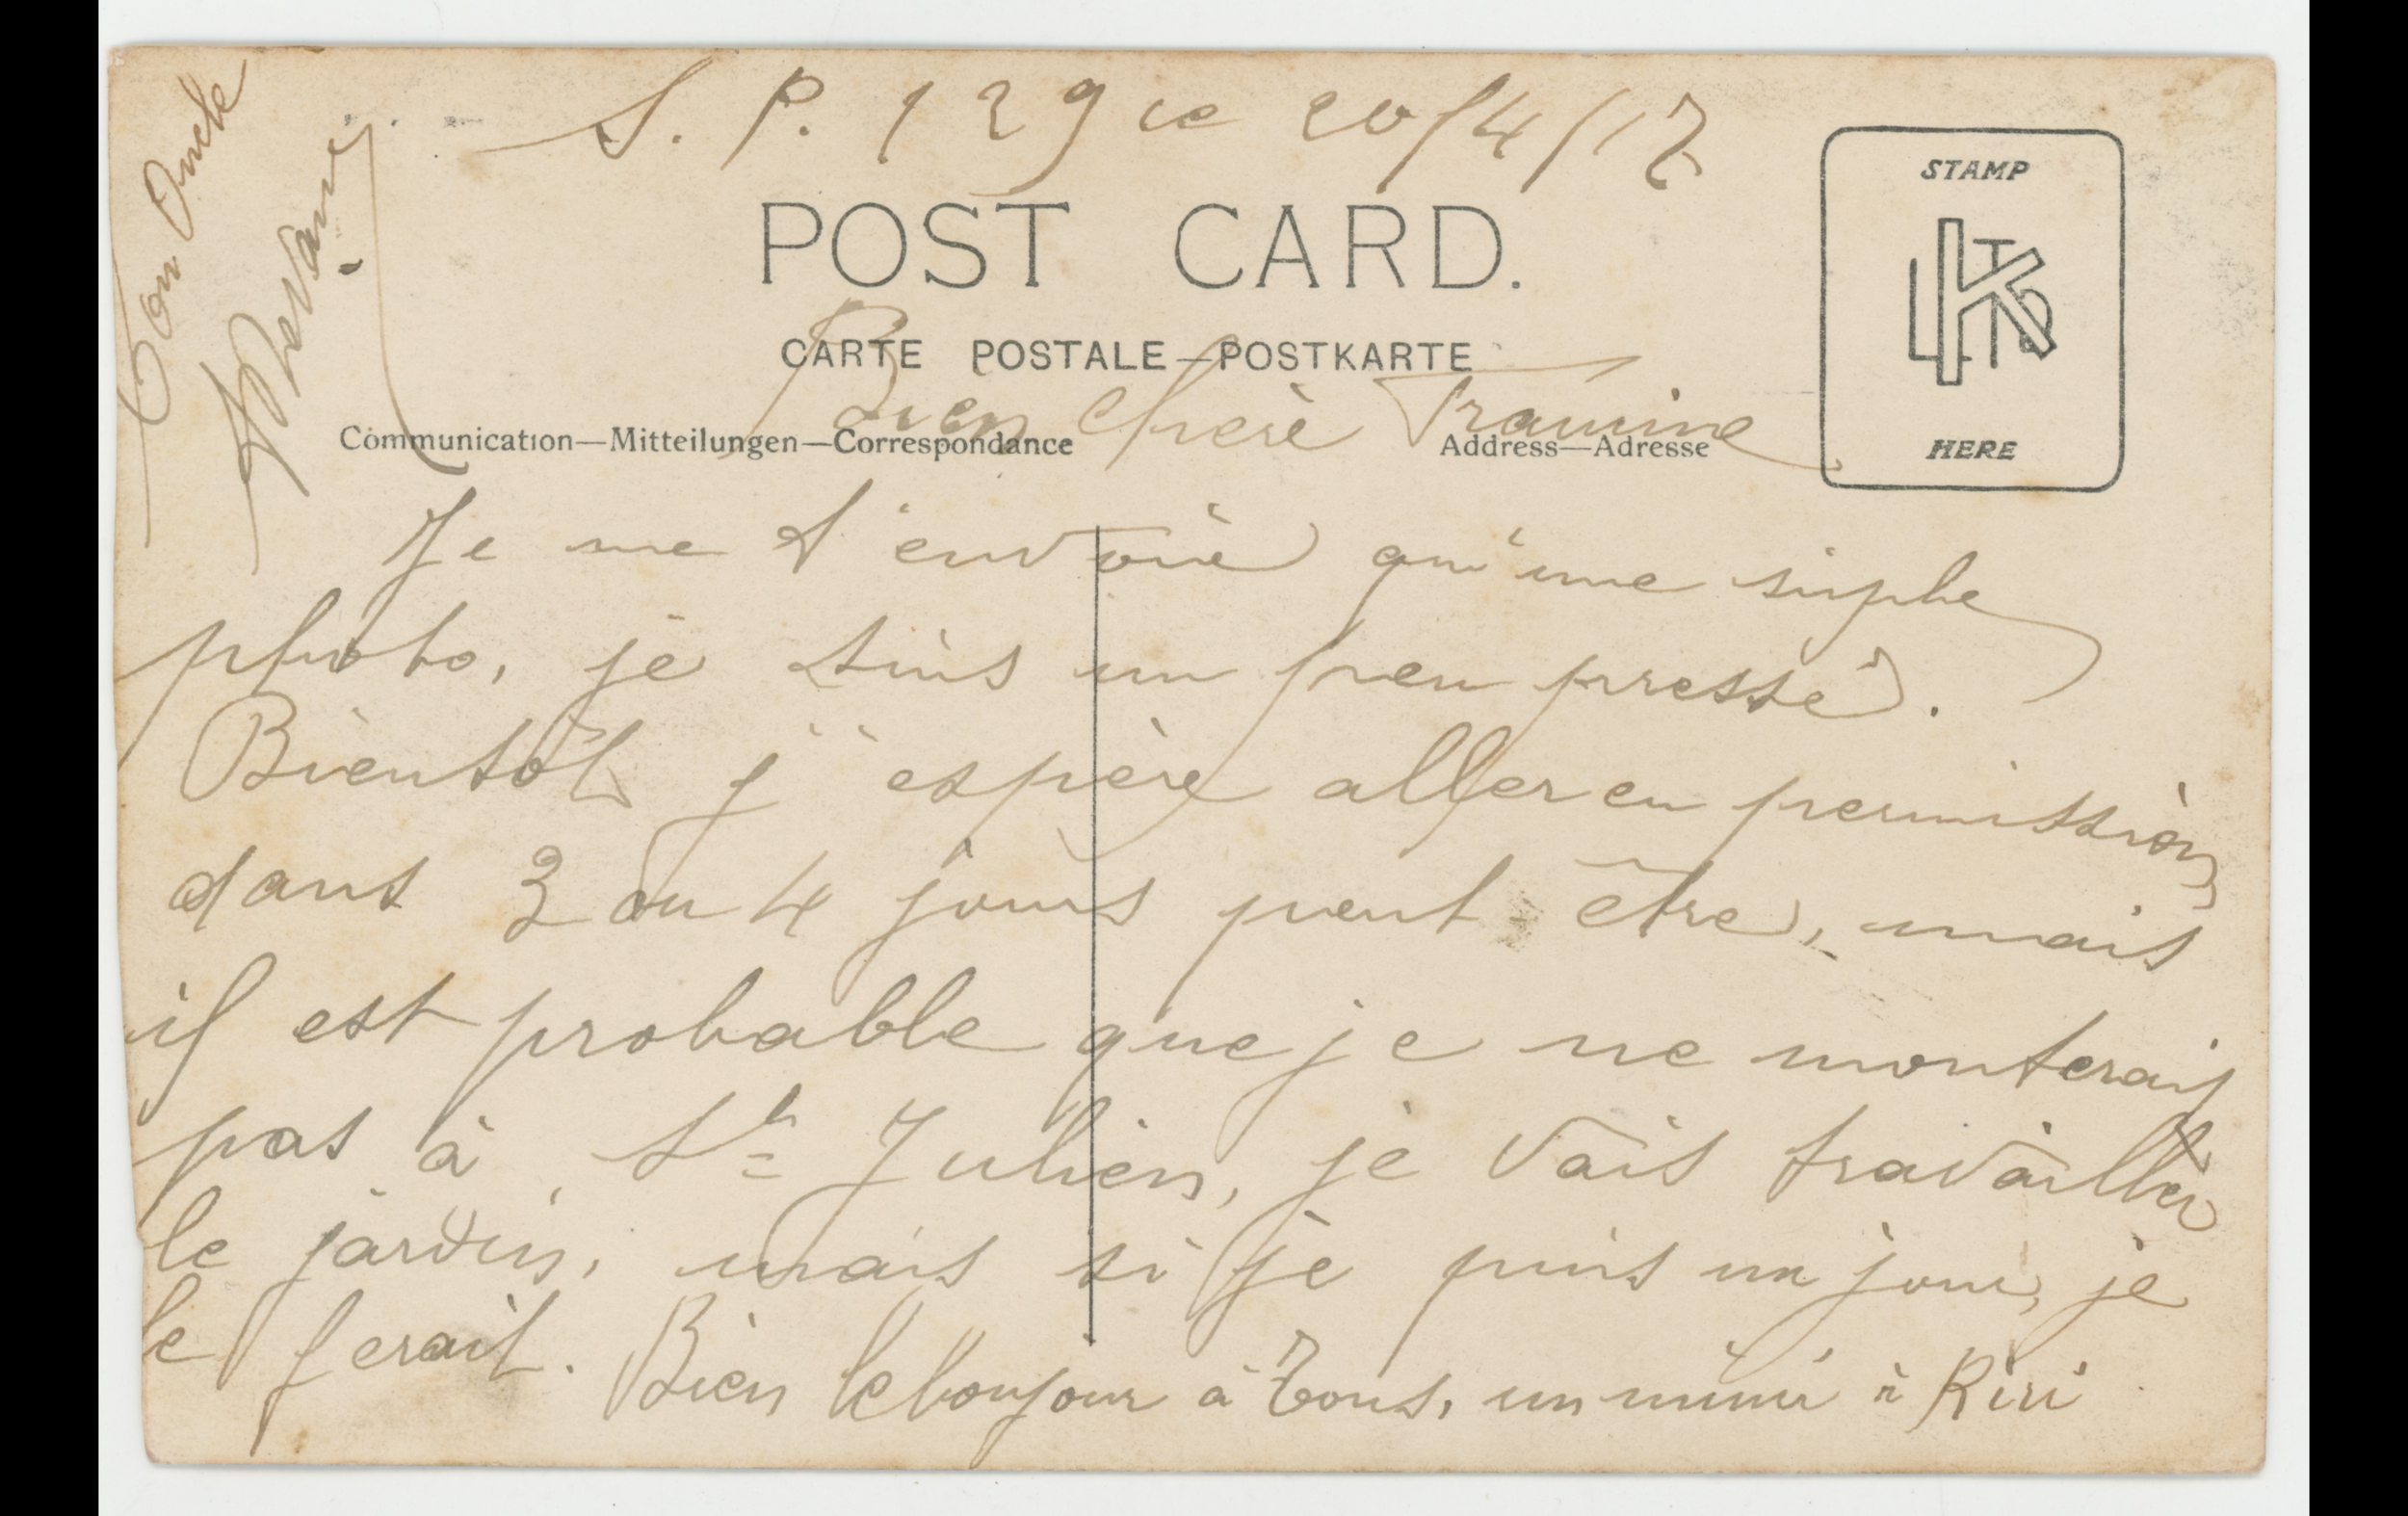 S. P. 129 le 20/4/17
POST CARD.
CARTE POSTALE—POSTKARTE
Bien chère
Communication—Mitteilungen—Correspondance
Address—Adresse
STAMP
HERE
Je ne t'envoie qu'une simple
photo, je suis un peu pressé.
Bientôt j'espère aller en permission
dans 3 ou 4 jours peut être, mais
il est probable que je ne monterais
pas à St Julien, je vais travailler
le jardin, mais si je puis un jour, je
le ferait. Bien le bonjour à tous, un mimi à Riri
Ton Oncle